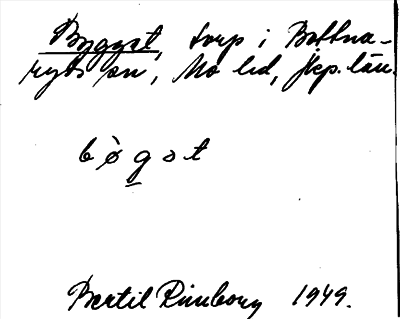 Bygget, torp i Bottna-
ryds sn, Mo hd, Jkp. län.
bø̀gət
Bertil Rimborg 1949.